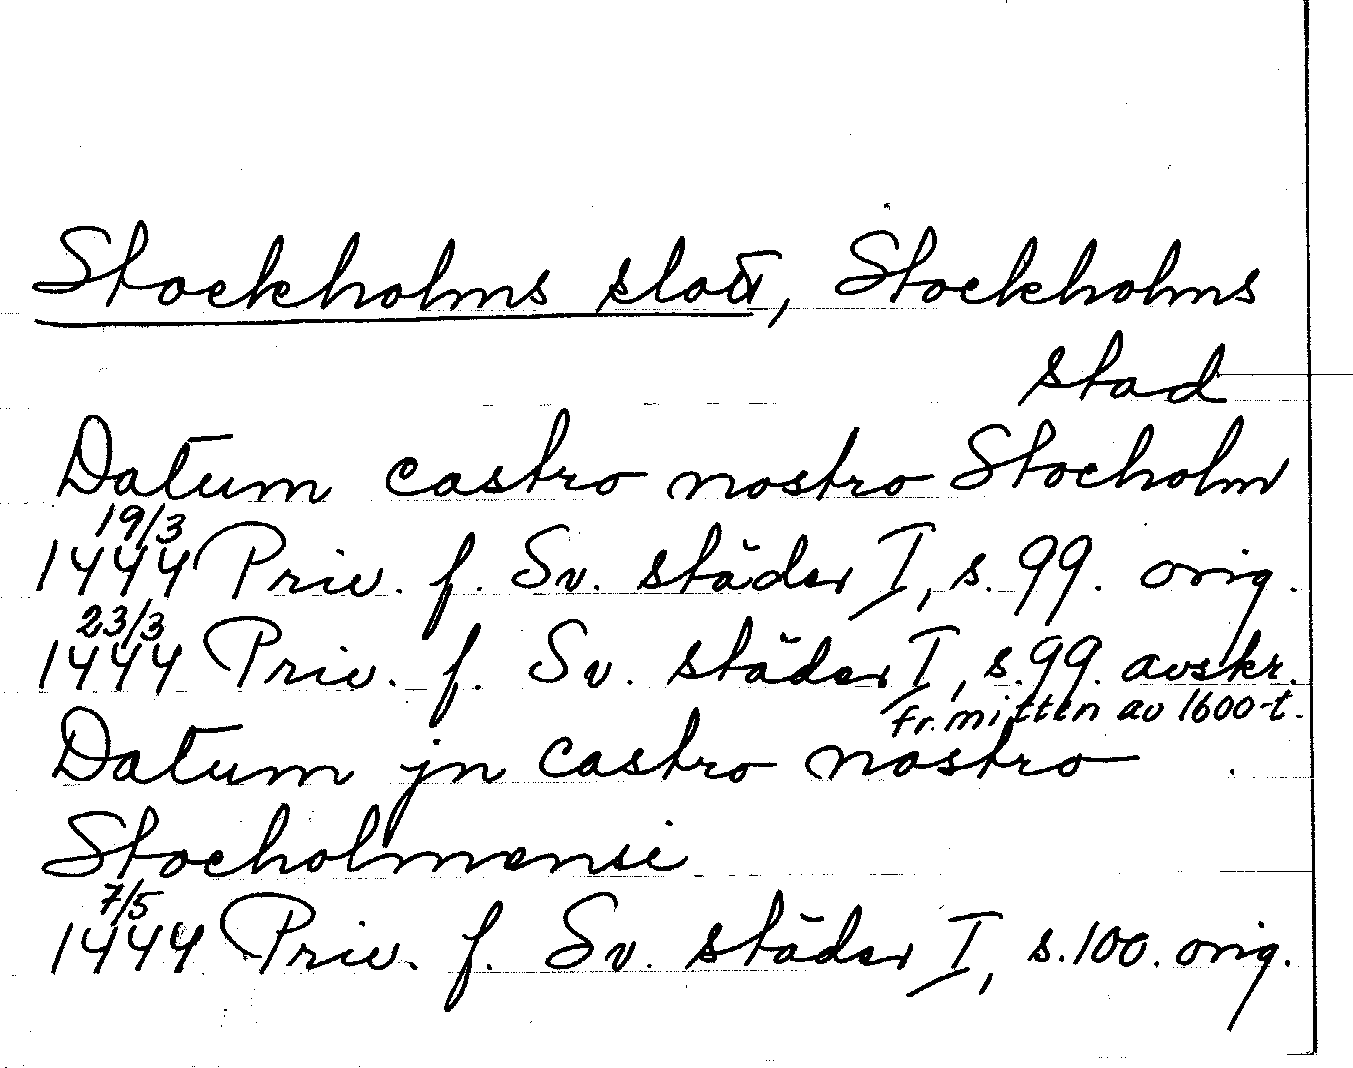 Stockholms slott, Stockholms
stad
Datum castro nostro Stocholm
19/3
1444 Priv. f. Sv. städer I, s. 99. orig.
23/3
1444 Priv. f. Sv. städer I, s. 99. avskr.
fr. mitten av 1600-t.
Datum jn castro nostro
Stocholmensi
7/5
1444 Priv. f. Sv. städer I, s. 100. orig.